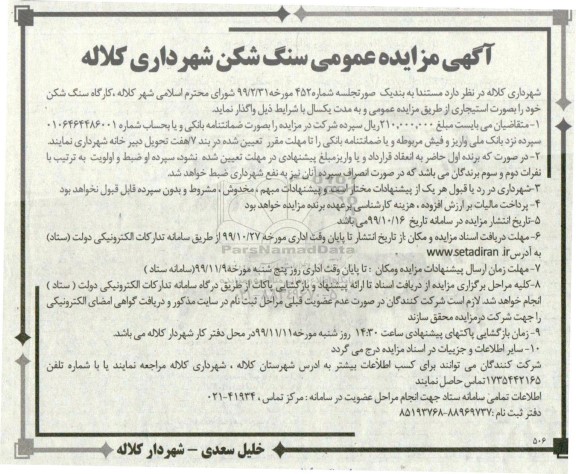 آگهی مزایده عمومی سنگ شکن شهرداری کلاله
شهرداری کلاله در نظر دارد مستندا به بندیک صورتجلسه شماره ۴۵۲ مورخه ۹۹/۲/۳۱ شورای محترم اسلامی شهر کلاله ،کارگاه سنگ شکن
خود را بصورت استیجاری از طریق مزایده عمومی و به مدت یکسال با شرایط ذیل واگذار نماید.
۱- متقاضیان می بایست مبلغ ۲۱۰,۰۰۰,۰۰۰ ریال سپرده شرکت در مزایده را بصورت ضمانتنامه بانکی و یا بحساب شماره ۰۱۰۶۴۶۴۴۸۶۰۰۱
سپرده نزد بانک ملی واریز و فیش مربوطه و یا ضمانتنامه بانکی را تا مهلت مقرر تعیین شده در بند ۷/هفت تحویل دبیر خانه شهرداری نمایند.
۲- در صورت که برنده اول حاضر به انعقاد قرارداد و یا واریز مبلغ پیشنهادی در مهلت تعیین شده نشود، سپرده او ضبط و اولویت به ترتیب با
نفرات دوم و سوم برندگان می باشد که در صورت انصراف سپرده آنان نیز به نفع شهرداری ضبط خواهد شد.
۳-شهرداری در رد یا قبول هر یک از پیشنهادات مختار است و پیشنهادات مبهم ، مخدوش ، مشروط و بدون سپرده قابل قبول نخواهد بود
۴- پرداخت مالیات بر ارزش افزوده ، هزینه کارشناسی برعهده برنده مزایده خواهد بود
۵-تاریخ انتشار مزایده در سامانه تاریخ ۹۹/۱۰/۱۶ می باشد
۶- مهلت دریافت اسناد مزایده و مکان :از تاریخ انتشار تا پایان وقت اداری مورخه ۹۹/۱۰/۲۷ از طریق سامانه تدارکات الکترونیکی دولت (ستاد)
به آدرس www.setadiran .ir
۷- مهلت زمان ارسال پیشنهادات مزایده ومکان : تا پایان وقت اداری روز پنج شنبه مورخه ۹۹/۱۱/۹(سامانه ستاد )
۸-کلیه مراحل برگزاری مزایده از دریافت اسناد تا ارائه پیشنهاد و بازگشایی پاکات از طریق درگاه سامانه تدارکات الکترونیکی دولت ( ستاد )
انجام خواهد شد. لازم است شرکت کنندگان در صورت عدم عضویت قبلی مراحل ثبت نام در سایت مذکور و دریافت گواهی امضای الکترونیکی
را جهت شرکت درمزایده محقق سازند
۹- زمان بازگشایی پاکتهای پیشنهادی ساعت ۱۴:۳۰ روز شنبه مورخه ۹۹/۱۱/۱۱ در محل دفتر کار شهردار کلاله می باشد.
۱۰- سایر اطلاعات و جزییات در اسناد مزایده درج می گردد
شرکت کنندگان می توانند برای کسب اطلاعات بیشتر به آدرس شهرستان کلاله ، شهرداری کلاله مراجعه نمایند یا با شماره تلفن
۱۷۳۵۴۴۲۱۶۵ تماس حاصل نمایند
اطلاعات تماس سامانه ستاد جهت انجام مراحل عضویت در سامانه : مرکز تماس ، ۴۱۹۳۴-۰۲۱
دفتر ثبت نام :۸۸۹۶۹۷۳۷-۸۵۱۹۳۷۶۸
۵۰۶
خلیل سعدی – شهردار کلاله
ParsNamadData